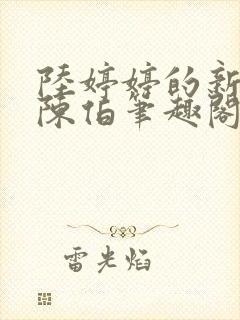 陸婷婷的新
陳伯筆趣閣
雷光焰